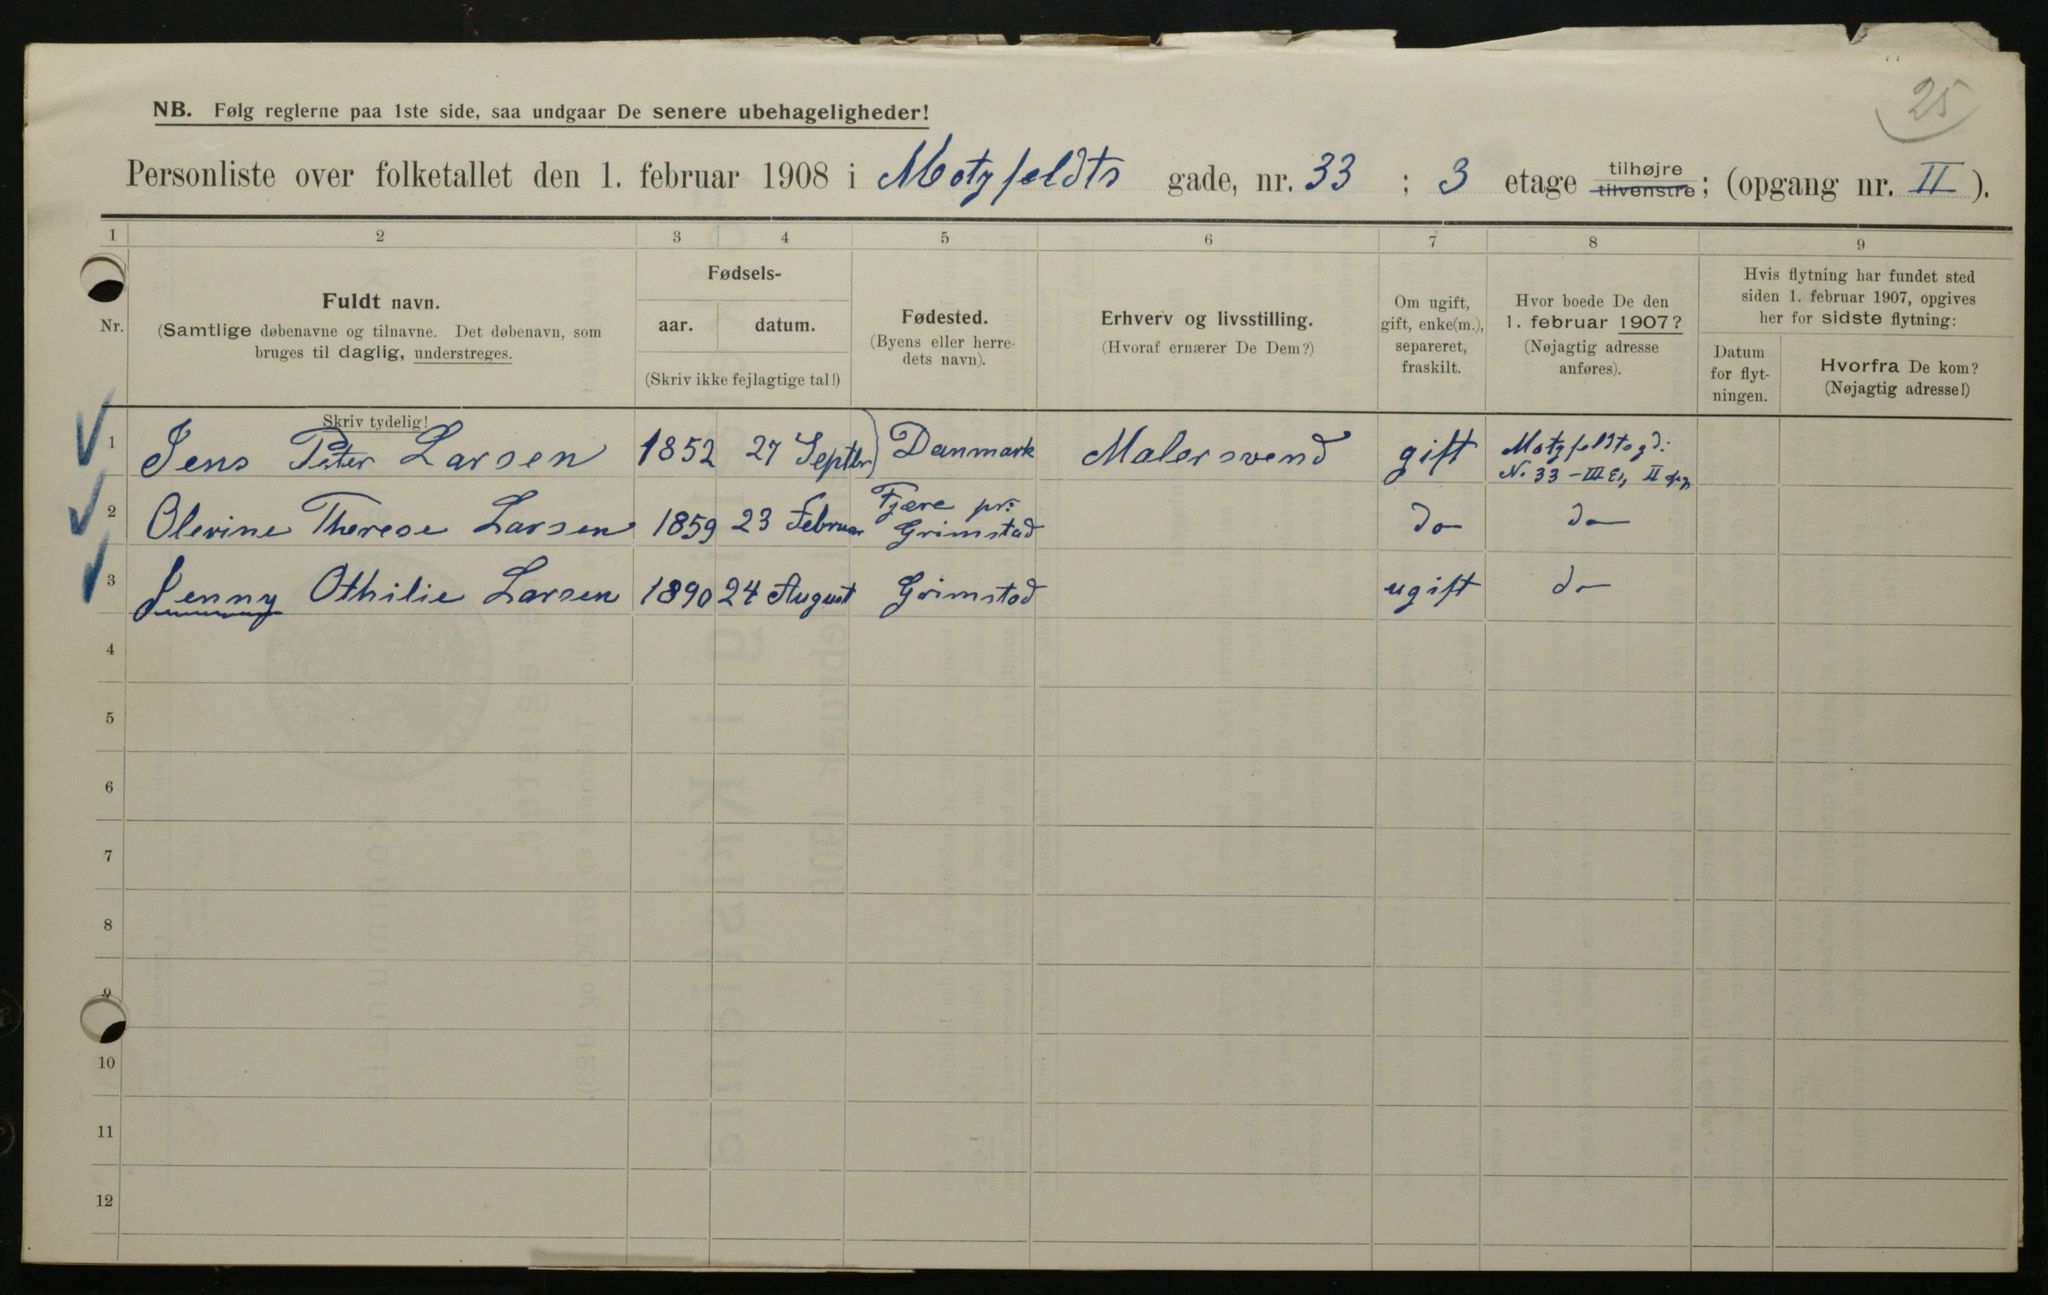 25
NB. Følg reglerne paa 1ste side, saa undgaar De senere ubehageligheder!
Personliste over folketallet den 1. februar 1908 i Motzfeldts gade, nr. 33 ; 3 etage tilhøjre tilvenstre; (opgang nr. II).
1 2 3 4 5 6 7 8 9
Nr.
Fuldt navn.
(Samtlige døbenavne og tilnavne. Det døbenavn, som
bruges til daglig, understreges.
Skriv tydelig!
Fødsels-
aar. datum.
(Skriv ikke fejlagtige tal!)
Fødested.
(Byens eller herre-
dets navn).
Erhverv og livsstilling.
(Hvoraf ernærer De Dem?)
Om ugift,
gift, enke(m.),
separeret,
fraskilt.
Hvor boede De den
1. februar 1907?
(Nøjagtig adresse
anføres).
Hvis flytning har fundet sted
siden 1. februar 1907, opgives
her for sidste flytning:
Datum
for flyt-
ningen.
Hvorfra De kom?
(Nøjagtig adresse!)
1 Jens Peter Larsen 1852 27 Septbr Danmark Malersvend gift Motzfeldtsgd:
No 33 - III Et, II
2 Olevine Therese Larsen 1859 23 Februar Fjære pr: Grimstad do do
3 Jenny Othilie Larsen 1890 24 August Grimstad ugift do
4
5
6
7
8
9
10
11
12